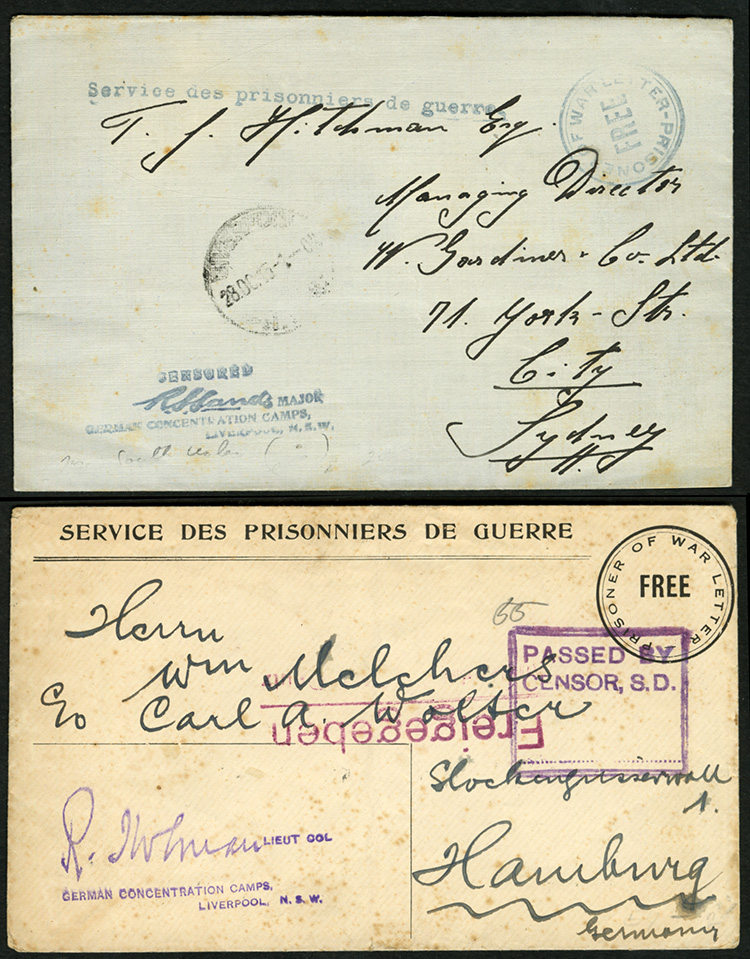 Service des prisonniers de guerre
PRISONER OF WAR LETTER-
FREE
T. J. Hitchman Esq.
Managing Director
W. Gardiner & Co. Ltd.
71. York-Str.
City
Sydney
28 DC 15-1-
CENSORED
MAJOR
GERMAN CONCENTRATION CAMPS,
LIVERPOOL, N.S.W.
SERVICE DES PRISONNIERS DE GUERRE
PRISONER OF WAR LETTER
FREE
55
Herrn
Wm Melchers
c/o Carl A. Wolter
PASSED BY
CENSOR, S.D.
Freigegeben
Glockengiesserwall
1.
Hamburg
Germany
R. Holman LIEUT COL
GERMAN CONCENTRATION CAMPS,
LIVERPOOL, N.S.W.